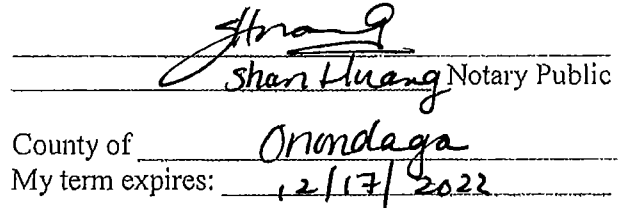 Shan Huang Notary Public
County of Onondaga
My term expires: 12/17/2022